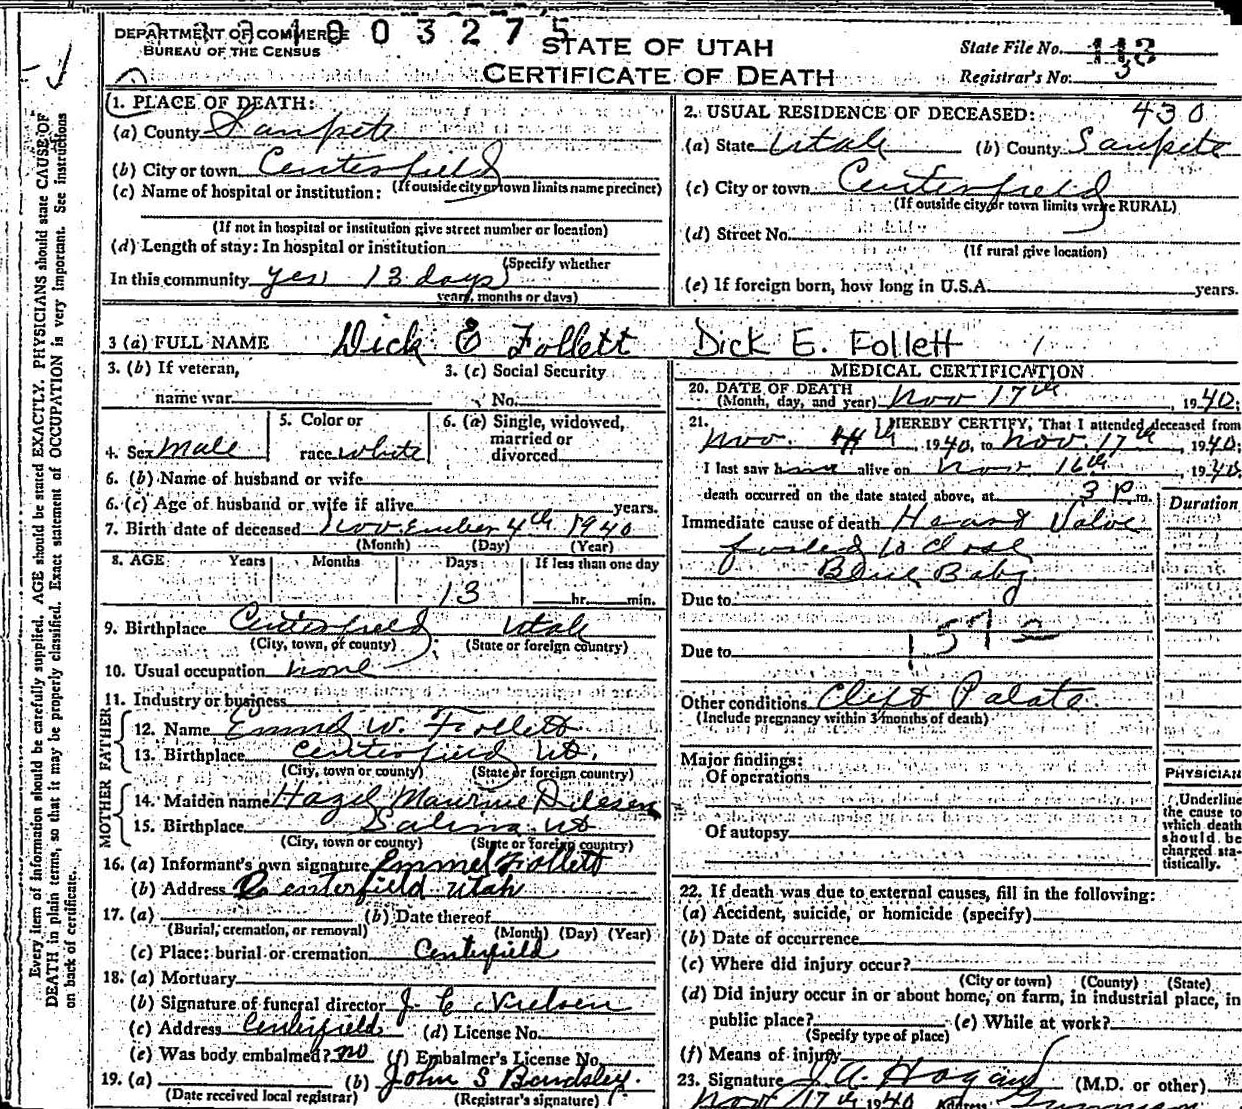 1003275
DEPARTMENT OF COMMERCE
BUREAU OF THE CENSUS
STATE OF UTAH
CERTIFICATE OF DEATH
State File No. 113
Registrar's No. 3
Every item of information should be carefully supplied. AGE should be stated EXACTLY. PHYSICIANS should state CAUSE OF
DEATH in plain terms, so that it may be properly classified. Exact statement of OCCUPATION is very important. See instructions
on back of certificate.
1. PLACE OF DEATH:
(a) County Sanpete
(b) City or town Centerfield
(If outside city or town limits name precinct)
(c) Name of hospital or institution:
(If not in hospital or institution give street number or location)
(d) Length of stay: In hospital or institution
(Specify whether
In this community yes 13 days
years, months or days)
2. USUAL RESIDENCE OF DECEASED: 430
(a) State Utah (b) County Sanpete
(c) City or town Centerfield
(If outside city or town limits write RURAL)
(d) Street No.
(If rural give location)
(e) If foreign born, how long in U.S.A. years.
3 (a) FULL NAME Dick E Follett Dick E. Follett
3. (b) If veteran, name war
3. (c) Social Security No.
4. Sex Male
5. Color or race white
6. (a) Single, widowed, married or divorced
6. (b) Name of husband or wife
6. (c) Age of husband or wife if alive years.
7. Birth date of deceased November 4th 1940
(Month) (Day) (Year)
8. AGE Years Months Days If less than one day
13 hr. min.
9. Birthplace Centerfield Utah
(City, town, or county) (State or foreign country)
10. Usual occupation none
11. Industry or business
FATHER
12. Name Emmel W. Follett
13. Birthplace Centerfield Ut.
(City, town or county) (State or foreign country)
MOTHER
14. Maiden name Hazel Maurine
15. Birthplace Salina Ut
(City, town or county) (State or foreign country)
16. (a) Informant's own signature Emmel Follett
(b) Address Centerfield Utah
17. (a) (b) Date thereof
(Burial, cremation, or removal) (Month) (Day) (Year)
(c) Place: burial or cremation Centerfield
18. (a) Mortuary
(b) Signature of funeral director J. E. Nielsen
(c) Address Centerfield (d) License No.
(e) Was body embalmed? no (f) Embalmer's License No.
19. (a) (b) John S Bardsley.
(Date received local registrar) (Registrar's signature)
MEDICAL CERTIFICATION
20. DATE OF DEATH
(Month, day, and year) Nov 17th, 1940;
21. I HEREBY CERTIFY, That I attended deceased from
Nov. 4th, 1940, to Nov. 17th 1940;
I last saw h alive on Nov 16th 1940
death occurred on the date stated above, at 3 P m.
Duration
Immediate cause of death Heart Valve
failed to close
Blue Baby
Due to
1572
Due to
Other conditions Cleft Palate.
(Include pregnancy within 3 months of death)
Major findings:
Of operations
Of autopsy
PHYSICIAN
Underline
the cause to
which death
should be
charged sta-
tistically.
22. If death was due to external causes, fill in the following:
(a) Accident, suicide, or homicide (specify)
(b) Date of occurrence
(c) Where did injury occur?
(City or town) (County) (State)
(d) Did injury occur in or about home, on farm, in industrial place, in
public place? (e) While at work?
(Specify type of place)
(f) Means of injury
23. Signature J. A. Hagan (M.D. or other)
Nov 17th 1940 Address Gunnison